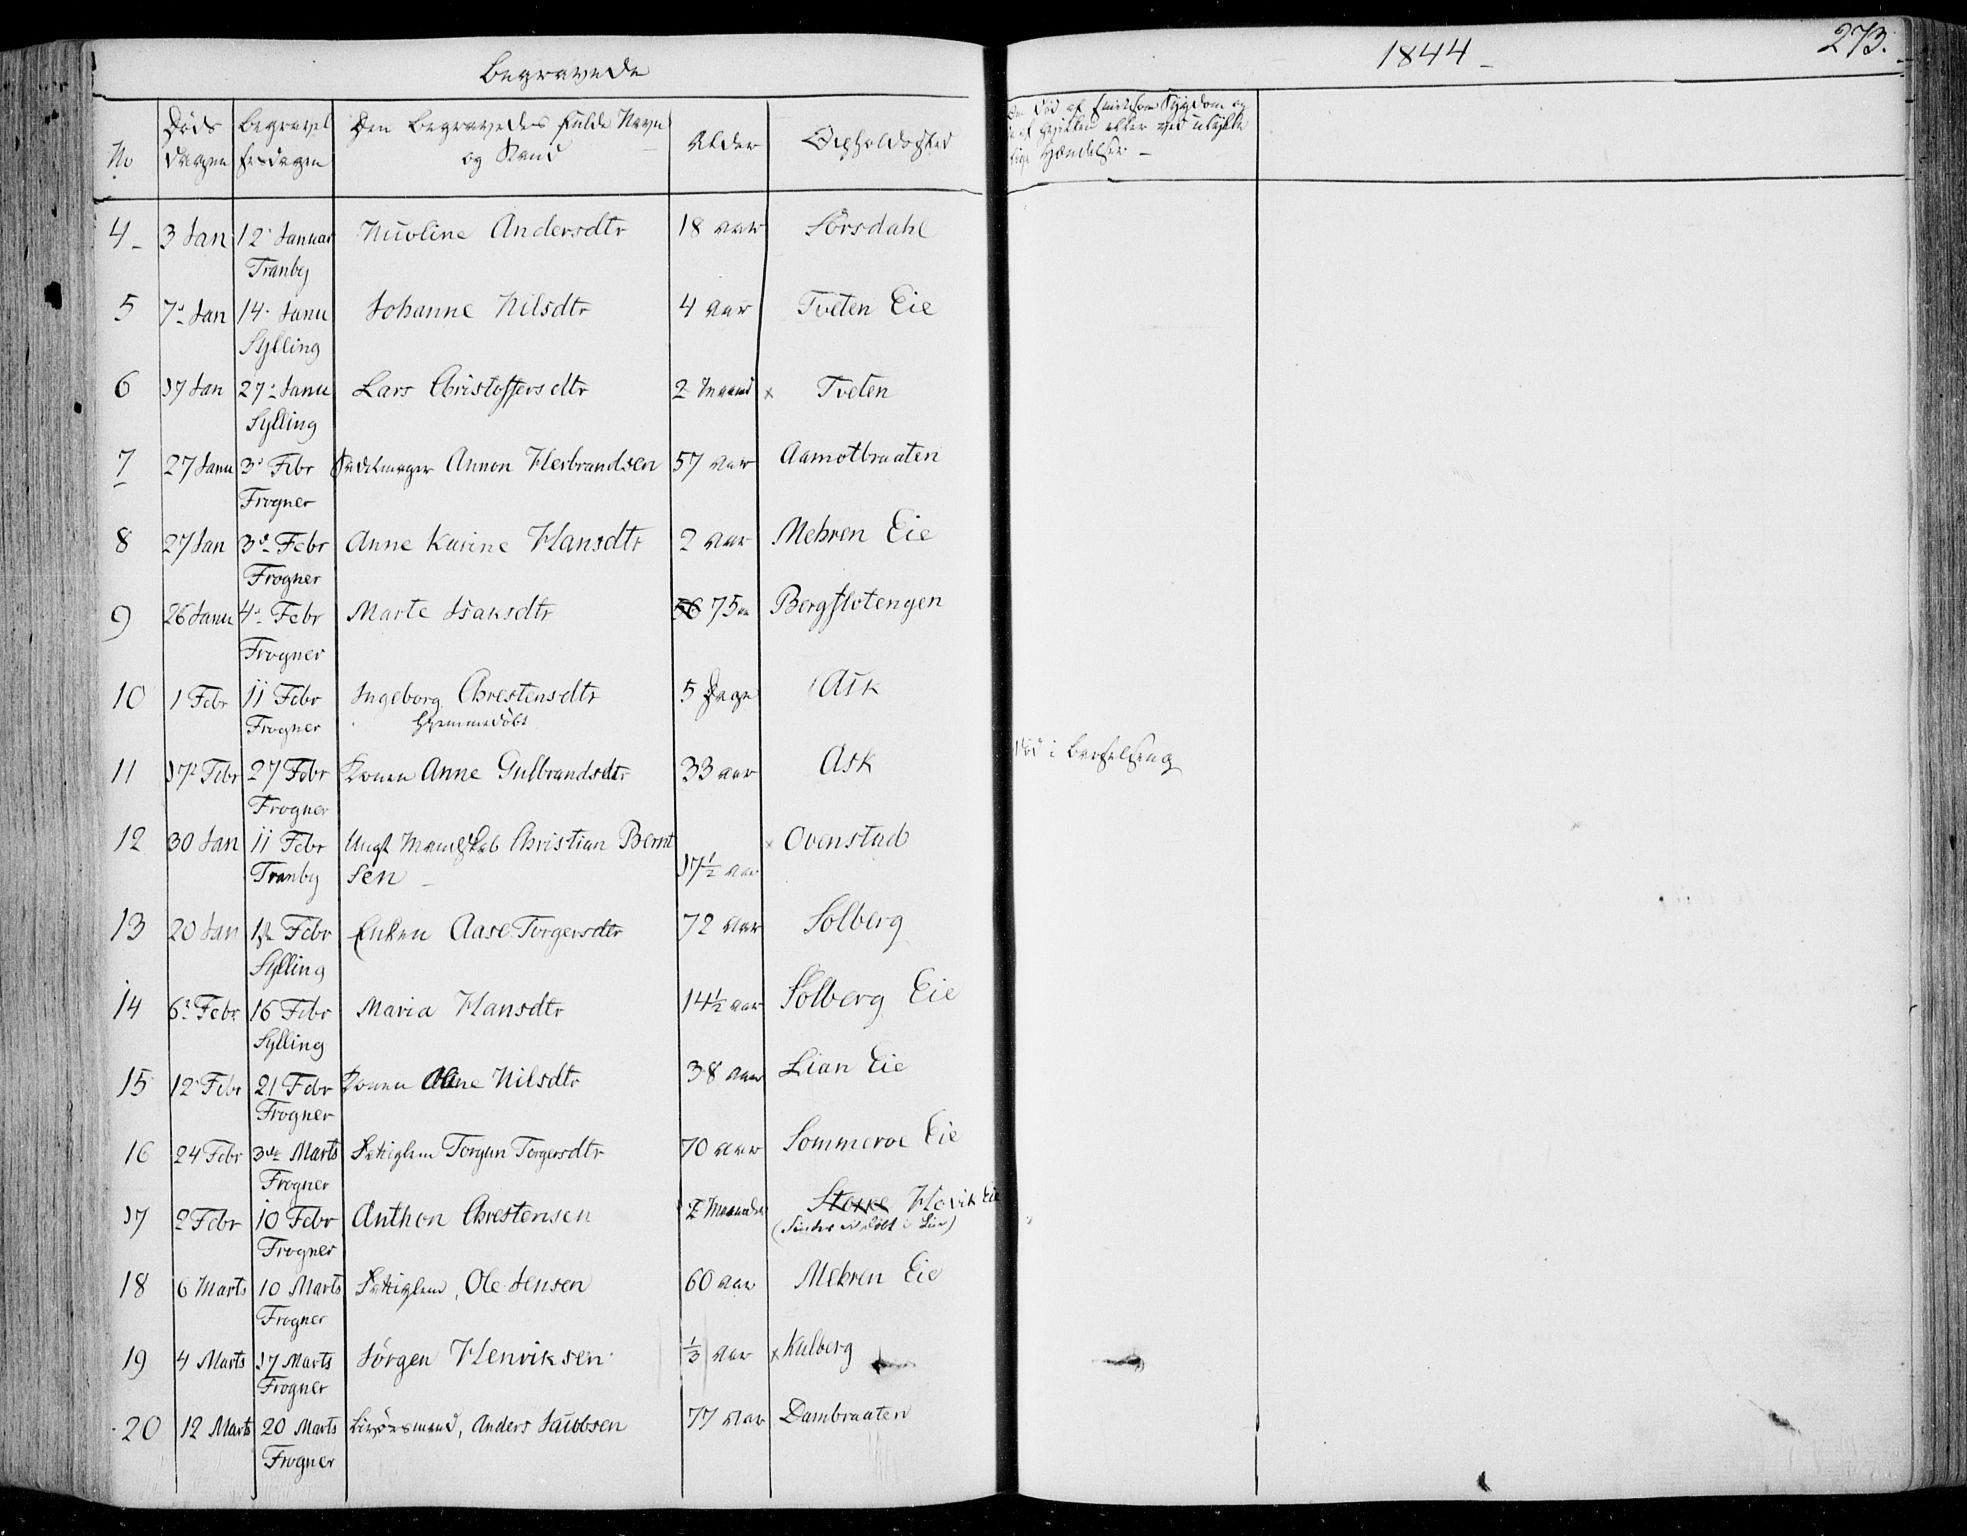 Begravede
1844 -
273.
No
Døds
dagen
Begravel
sesdagen
Den Begravedes fulde Navn
og Stand
Alder
Opholdssted
Om død af smitsom Sygdom og
eller ved ulykke
lige Hændelser -
4 - 3 Jan 12 Januar Nicoline Andersdtr 18 aar Sørsdahl
Tranby
5 7de Jan 14 Janu Johanne Nilsdtr 4 aar Tveten Eie
Sylling
6 17 Jan 27 Janu Lars Christoffersdtr 2 Maaned x Tveten
Sylling
7 27 Janu 3 Febr Annon Herbrandsen 57 aar Aamotbraaten
Frogner
8 27 Jan 3de Febr Anne Karine Hansdtr 2 aar Mehren Eie
Frogner
9 26 Janu 4 Febr Marte Isaksdtr 56 75 aa Bergflotengen
Frogner
10 1 Febr 11 Febr Ingeborg Chrestensdtr 5 Dage Ask
Frogner Hjemmedøbt
11 17 Febr 27 Febr Konen Anne Gulbrandsdtr 33 aar Ask Død i Barselseng
Frogner
12 30 Jan 11 Febr Ungt Mandskab Christian Bernt x Ovenstad
Tranby sen - 17 1/2 aar
13 20 Jan 1ste Febr Enken Aase Torgersdtr 72 aar Solberg
Sylling
14 6 Febr 16 Febr Maria Hansdtr 14 1/2 aar Solberg Eie
Sylling
15 12 Febr 21 Febr Konen Anne Nilsdtr 38 aar Lian Eie
Frogner
16 24 Febr 3die Marts Fattiglem Torgun Torgersdtr 70 aar Sommeroe Eie
Frogner
17 2 Febr 10 Febr Anthon Chrestensen 2 Maaneder Store Høvik Eie
Frogner (døbt i Lier)
18 6 Marts 10 Marts Fattiglem, Ole Jensen 60 aar Mehren Eie
Frogner
19 4 Marts 17 Marts Jørgen Henriksen 1/3 aar x Kulberg
Frogner
20 12 Marts 20 Marts Livørsmand, Anders Jacobsen 77 aar Dambraaten
Frogner